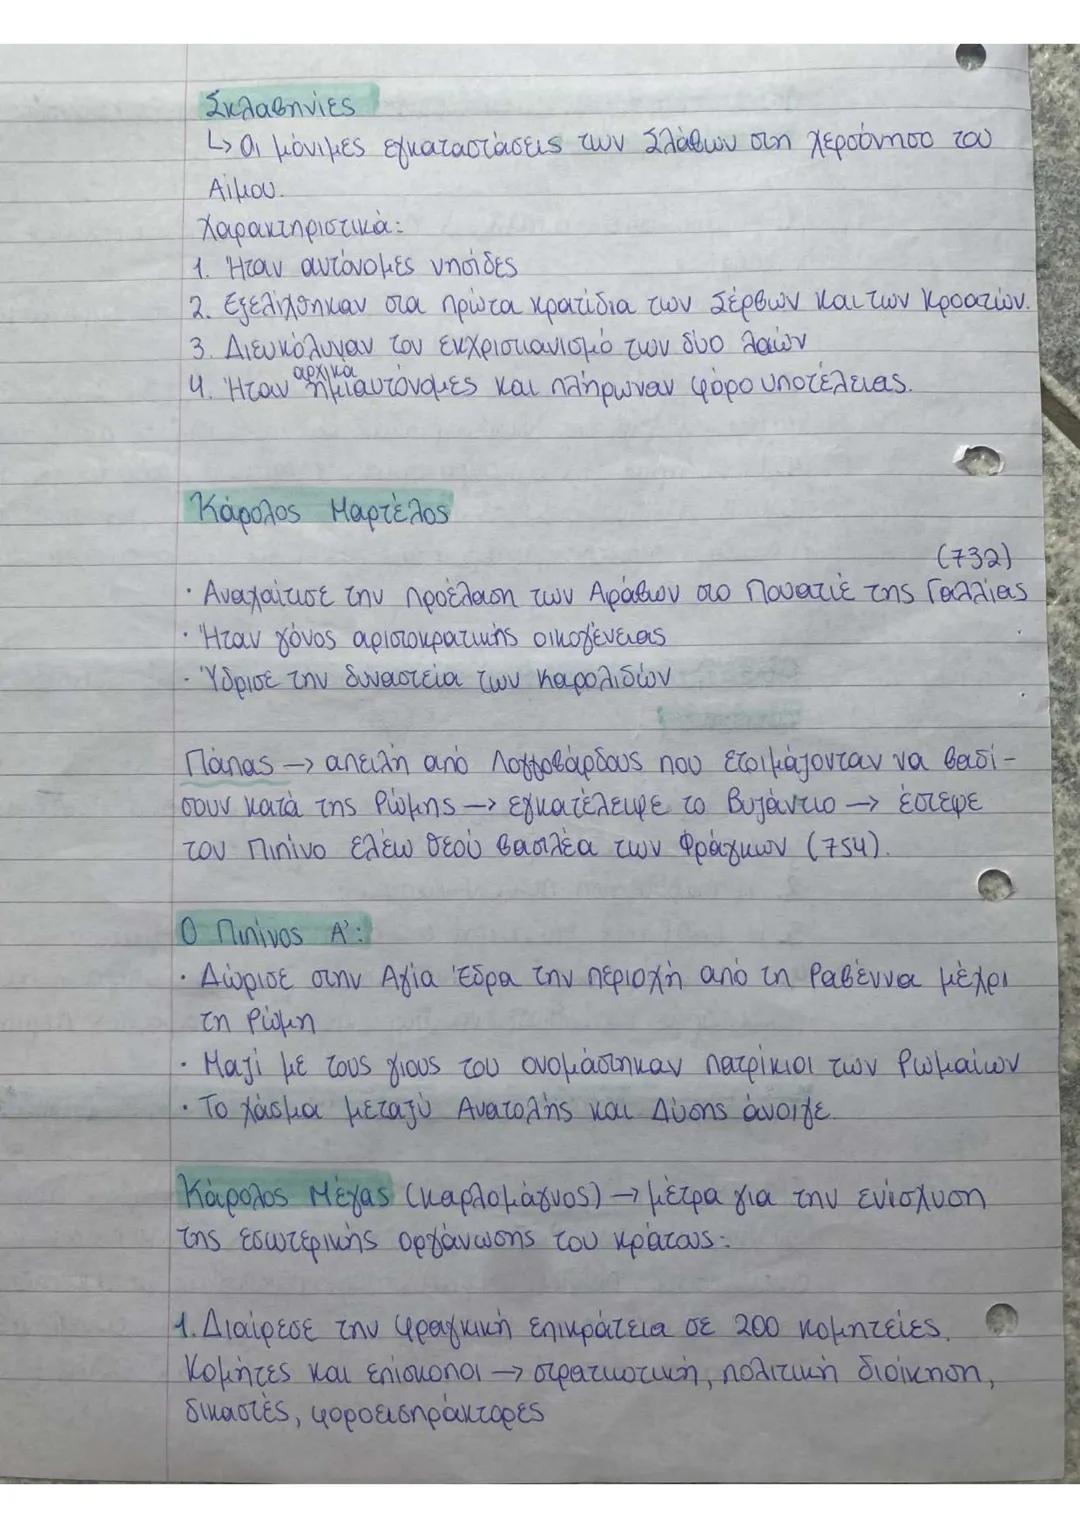 Σκλαβηνίες
↳ Οι μόνιμες εγκαταστάσεις των Σλάβων στη χερσόνησο του
Αίμου.
Χαρακτηριστικά:
1. Ήταν αυτόνομες νησίδες
2. Εξελίχθηκαν στα πρώτα κρατίδια των Σέρβων και των Κροατών.
3. Διευκόλυναν τον εκχριστιανισμό των δύο λαών
4. Ήταν αρχικά ημιαυτόνομες και πλήρωναν φόρο υποτέλειας.
Κάρολος Μαρτέλος
(732)
· Αναχαίτισε την προέλαση των Αράβων στο Πουατιέ της Γαλλίας
· Ήταν γόνος αριστοκρατικής οικογένειας
· Ύδρισε την δυναστεία των Καρολιδών
Πάπας → απειλή από Λογγοβάρδους που ετοιμάζονταν να βαδί-
σουν κατά της Ρώμης → εγκατέλειψε το Βυζάντιο → έστεψε
τον Πιπίνο ελέω Θεού βασιλέα των Φράγκων (754).
Ο Πιπίνος Α':
· Δώρισε στην Αγία Έδρα την περιοχή από τη Ραβέννα μέχρι
τη Ρώμη
· Μαζί με τους γιους του ονομάστηκαν πατρίκιοι των Ρωμαίων
· Το χάσμα μεταξύ Ανατολής και Δύσης άνοιγε.
Κάρολος Μέγας (Καρλομάγνος) → μέτρα για την ενίσχυση
της εσωτερικής οργάνωσης του κράτους:
1. Διαίρεσε την φραγκική επικράτεια σε 200 κομητείες.
Κομήτες και επίσκοποι → στρατιωτική, πολιτική διοίκηση,
δικαστές, φοροεισπράκτορες